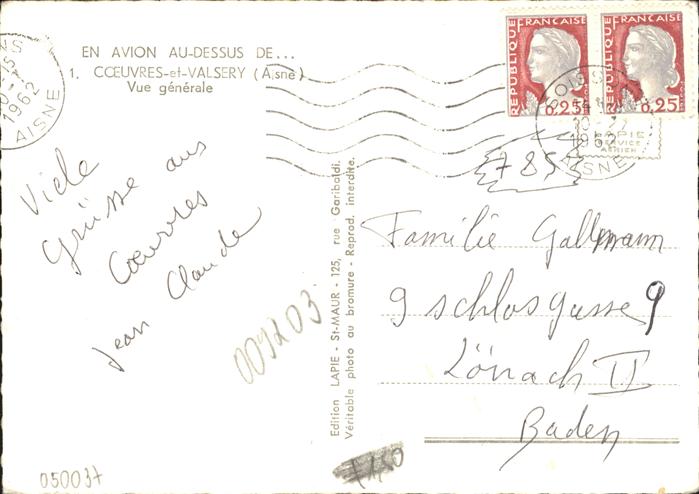 EN AVION AU-DESSUS DE...
1. CŒUVRES-et-VALSERY (Aisne)
Vue générale
1962
AISNE
RÉPUBLIQUE FRANÇAISE
0,25
RÉPUBLIQUE FRANÇAISE
0,25
LAPIE
SERVICE
AÉRIEN
AISNE
785
Viele
Grüsse aus
Cœuvres
Jean Claude
009203
Edition LAPIE - St-MAUR - 125, rue Garibaldi.
Véritable photo au bromure - Reprod. interdite.
Familie Gallmann
9 schlosgasse 9
Lörrach II
Baden
050037